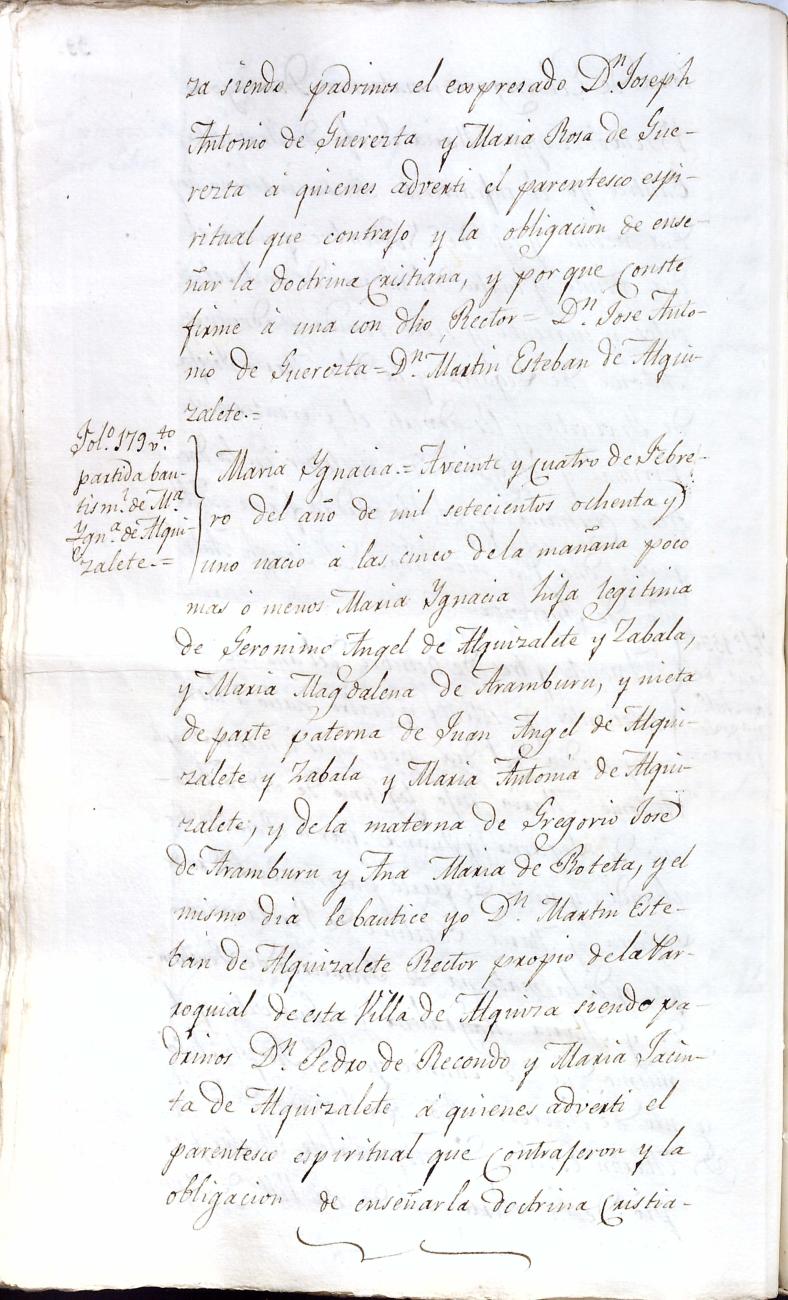 za siendo padrinos el expresado Dn. Joseph
Antonio de Guerezta y Maria Rosa de Gue-
rezta á quienes adverti el parentesco espi-
ritual que contrajo y la obligacion de ense-
ñar la doctrina cristiana, y por que conste
firme á una con dho Rector = Dn. Jose Anto-
nio de Guerezta = Dn. Martin Esteban de Alqui-
zalete.=
Fol.o 179 v.to
partida bau-
tism.l de M.a
Ygn.a de Alqui-
zalete.=
Maria Ygnacia.= A veinte y cuatro de Febre-
ro del año de mil setecientos ochenta y
uno nacio á las cinco de la mañana poco
mas ó menos Maria Ygnacia hija legitima
de Geronimo Angel de Alquizalete y Zabala,
y Maria Magdalena de Aramburu, y nieta
de parte paterna de Juan Angel de Alqui-
zalete y Zabala y Maria Antonia de Alqui-
zalete, y de la materna de Gregorio José
de Aramburu y Ana Maria de Roteta, y el
mismo dia le bautice yo Dn. Martin Este-
ban de Alquizalete Rector propio de la Par-
roquial de esta Villa de Alquiza siendo pa-
drinos Dn. Pedro de Recondo y Maria Jacin-
ta de Alquizalete á quienes adverti el
parentesco espiritual que contrajeron y la
obligacion de enseñar la doctrina cristia-